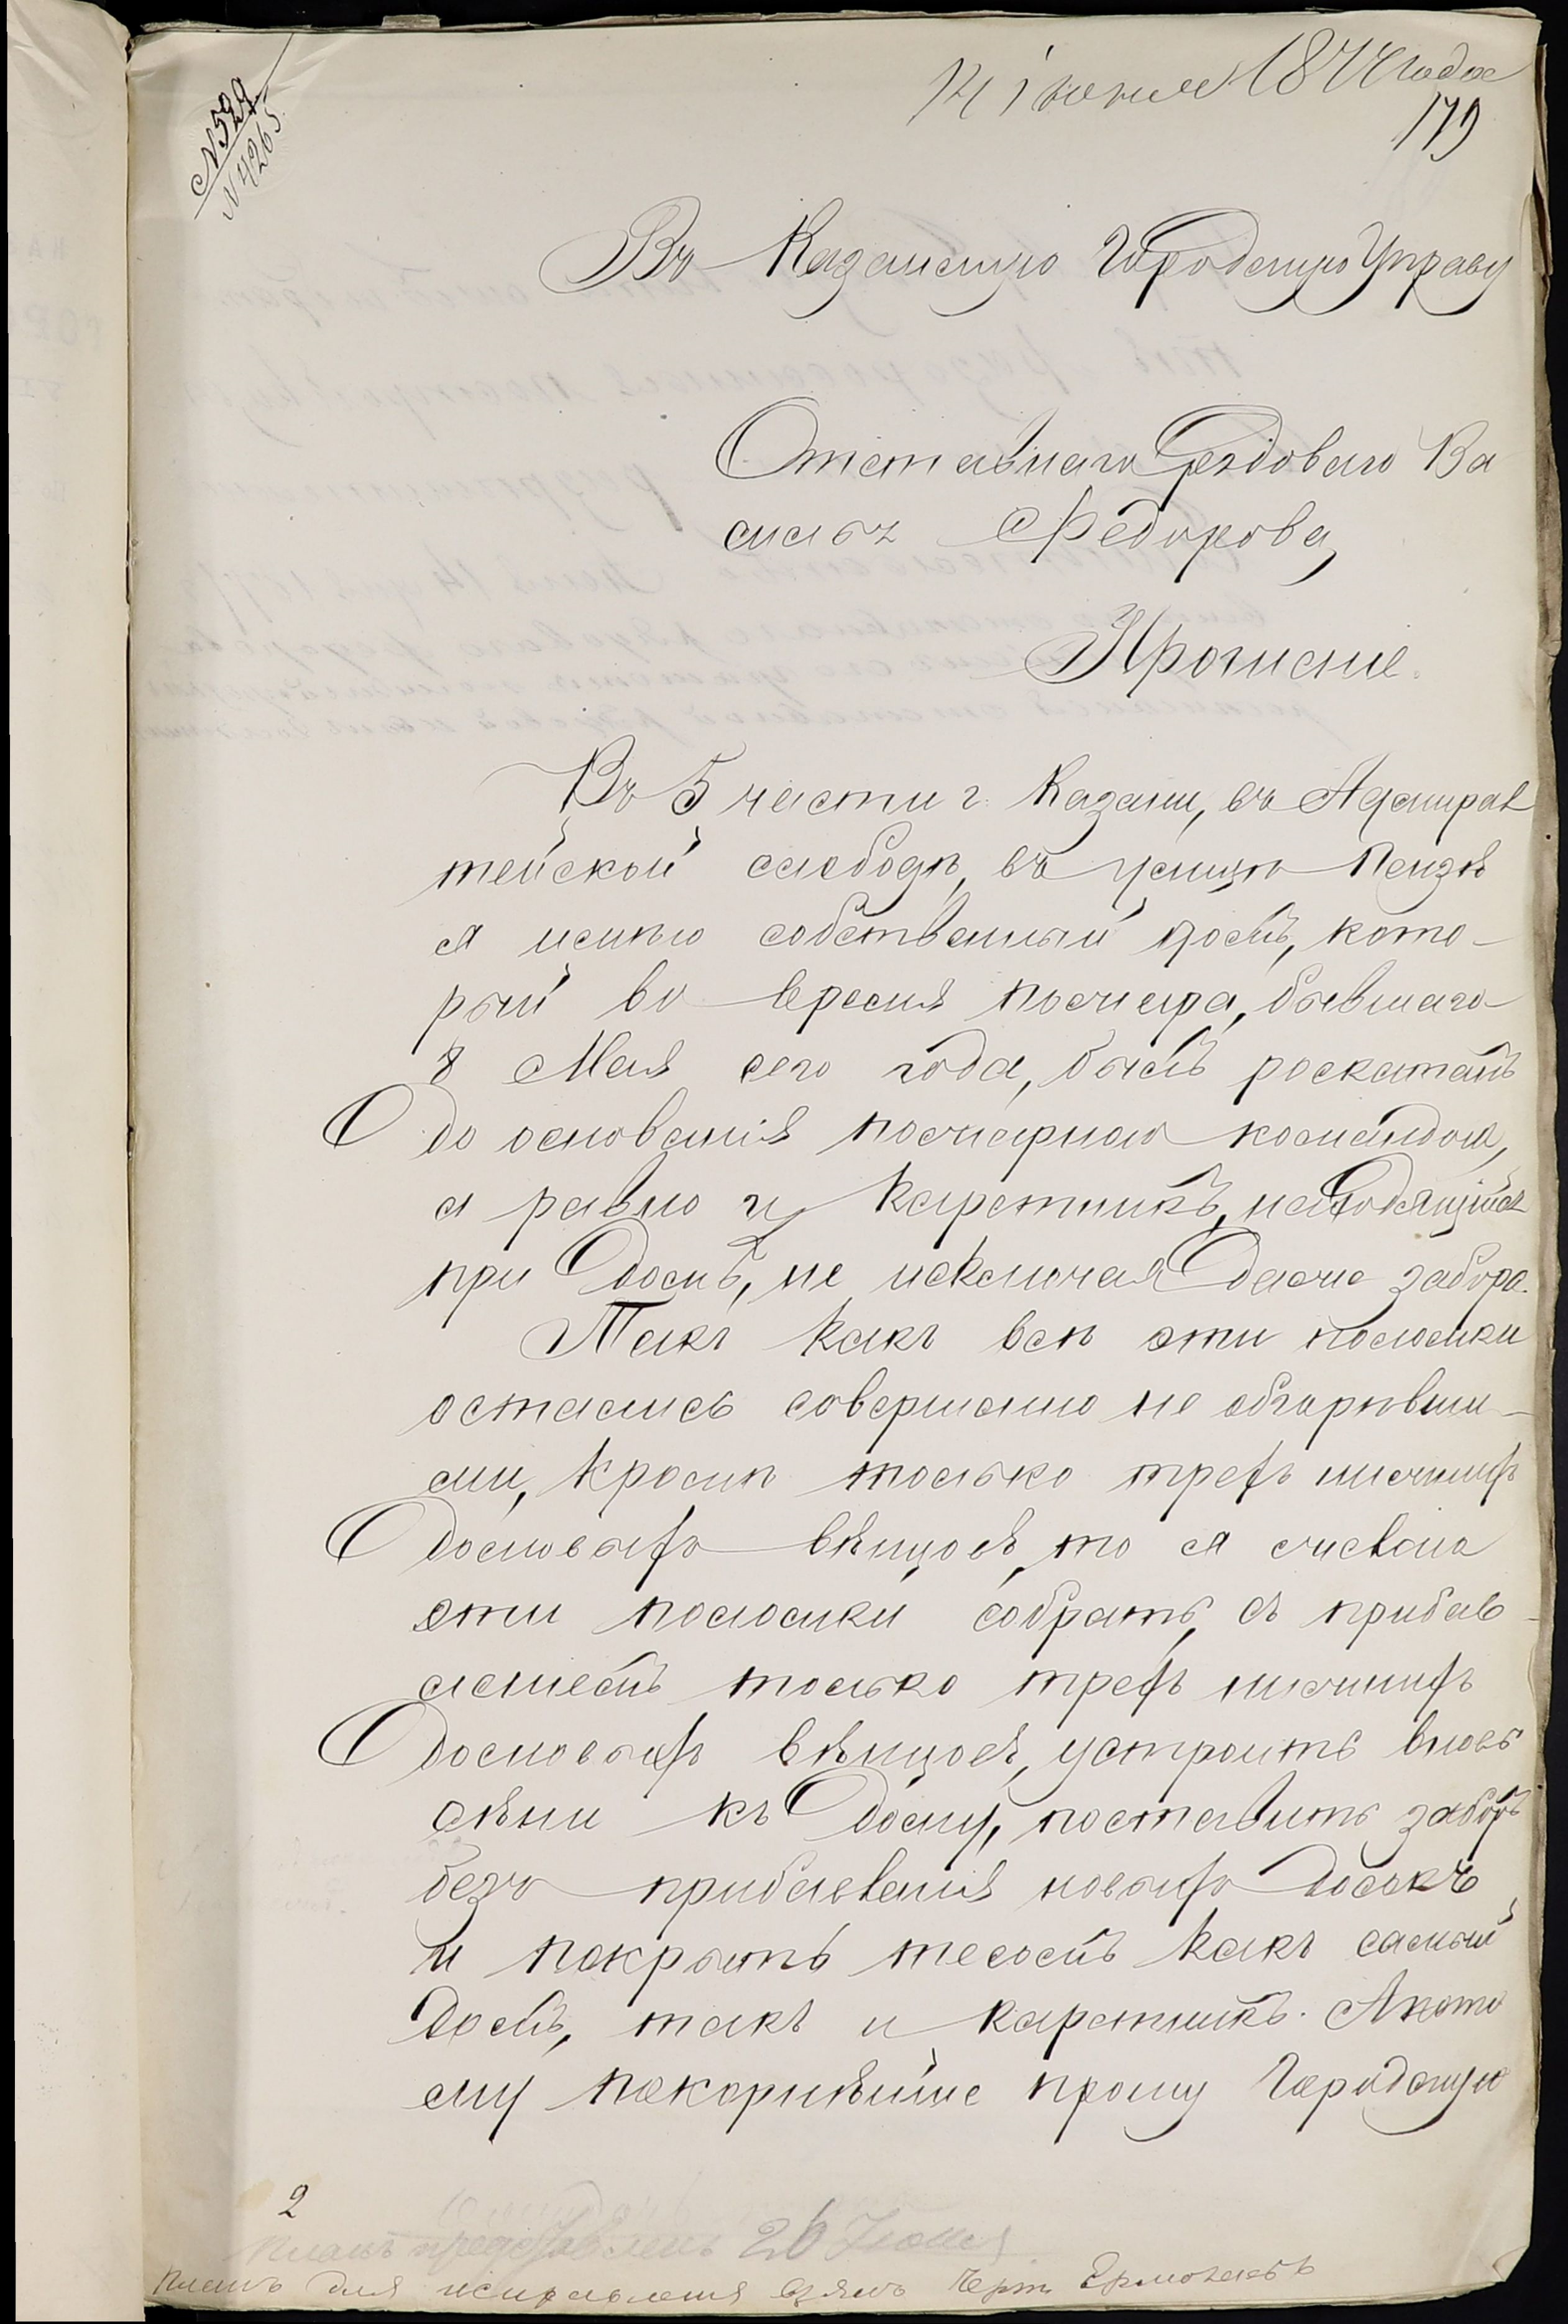 14 іюня 1874 года
179
N 529
N 4265
Въ Казанскую Городскую Управу
Отставнаго Рядоваго Ва
силья Федорова,
Прошеніе.
Въ 5 части г. Казани, въ Адмирал
тейской слободѣ, въ улицѣ Пензѣ
я имѣю собственный домъ, кото-
рый во время пожара, бывшаго
8 Мая сего года, былъ роскатанъ
до основанія пожарною командою,
а равно и каретникъ, находящійся
при домѣ, не исключая даже забора.
Такъ какъ всѣ эти постройки
остались совершенно не обгорѣвши-
ми, кромѣ только трехъ нижнихъ
домовыхъ вѣнцовъ, то я желаю
эти постройки собрать, съ прибав-
леніемъ только трехъ нижнихъ
домовыхъ вѣнцовъ, устроить вновь
сѣни къ дому, поставить заборъ
безъ прибавленія новыхъ досокъ
и покрыть тесомъ какъ самый
домъ, такъ и каретникъ. А пото
му покорнѣйше прошу Городскую
2
Планъ представленъ 26 Іюня
Планъ для исправленія взялъ Черт. Ермолаевъ